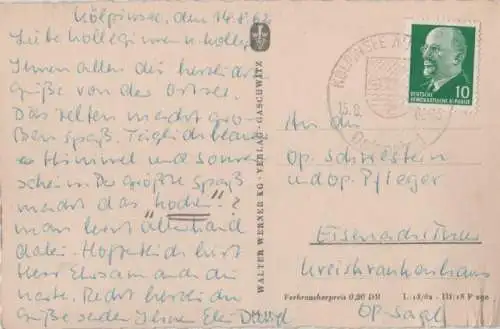 Kölpinsee, den 14.8.62
Liebe Kolleginnen u. Kolleg.
Ihnen allen die herzlichst
Grüße von der Ostsee.
Das Zelten macht gro-
ßen Spaß. Täglich blau
er Himmel und Sonnen
schein. Der größte Spaß
macht das "kochen"?
man lernt allerhand
dabei. Hoffentlich hilft
Herr Ehesam auch die
Recht herzliche
Grüße senden Ihnen
WALTER WERNER KG · VERLAG · GASCHWITZ
KÖLPINSEE
15.8.
DEUTSCHE
DEMOKRATISCHE REPUBLIK
10
An die
Op. Schwestern
und Op. Pfleger
Kreiskrankenhaus
OP-Saal
Verbraucherpreis 0,20 DM